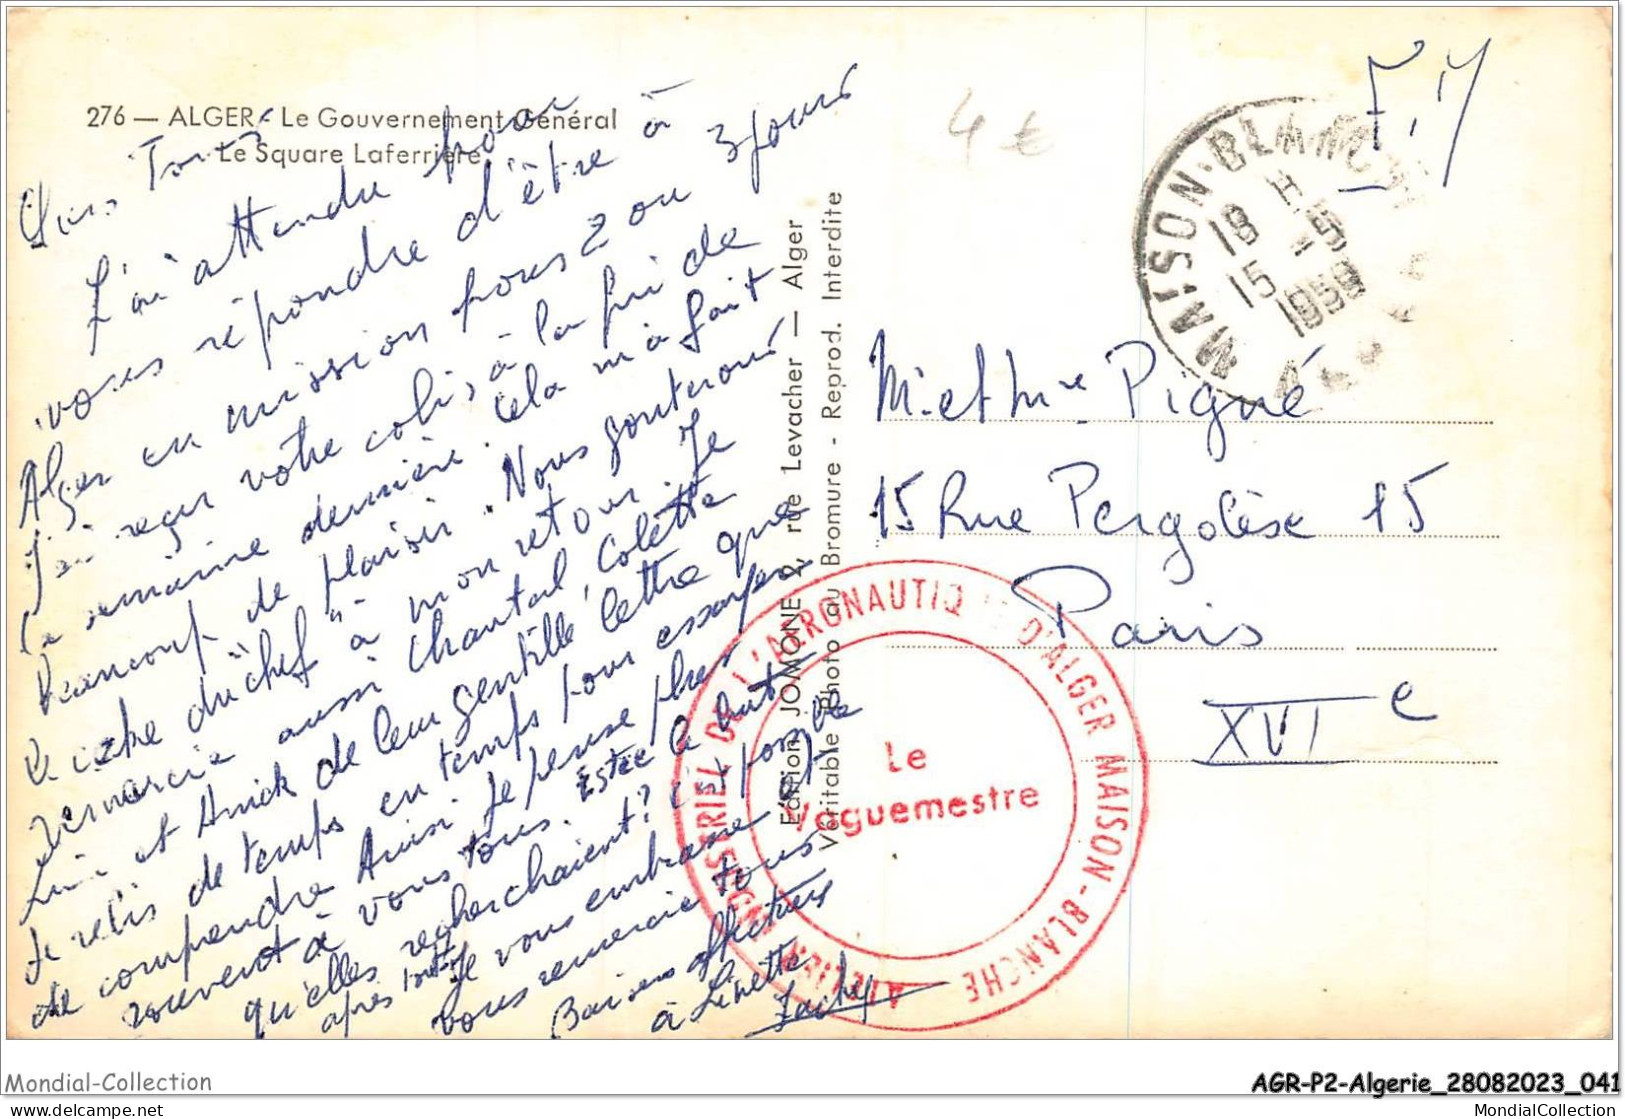 276 — ALGER - Le Gouvernement Général
Le Square Laferrière
Chers Tous
J'ai attendu pour
vous répondre d'être à
Alger en mission pour 2 ou 3 jours
J'ai reçu votre colis, à la fin de
la semaine dernière. Cela m'a fait
beaucoup de plaisir. Nous gouterons
le cake du "chef" à mon retour. Je
remercie aussi Chantal, Colette
et Anick de leur gentille lettre que
Je relis de temps en temps pour essayer
de comprendre. Ainsi Je pense plus
souvent à vous tous. Est ce le but
qu'elles recherchaient? c'est possible
après tout. Je vous embrasse et
vous remercie tous
Baisers affectueux
à Linette
Edition JOMONE 2, rue Levacher — Alger
Véritable Photo au Bromure - Reprod. Interdite
4 €
F. M
MAISON-BLANCHE
18 H
15 - 5
M. et Mme Pigné
15 Rue Pergolèse 15
Paris
XVIe
ATELIER INDUSTRIEL DE L'AERONAUTIQUE D'ALGER MAISON-BLANCHE
Le
Vaguemestre
Mondial-Collection
AGR-P2-Algerie_28082023_041
www.delcampe.net
MondialCollection